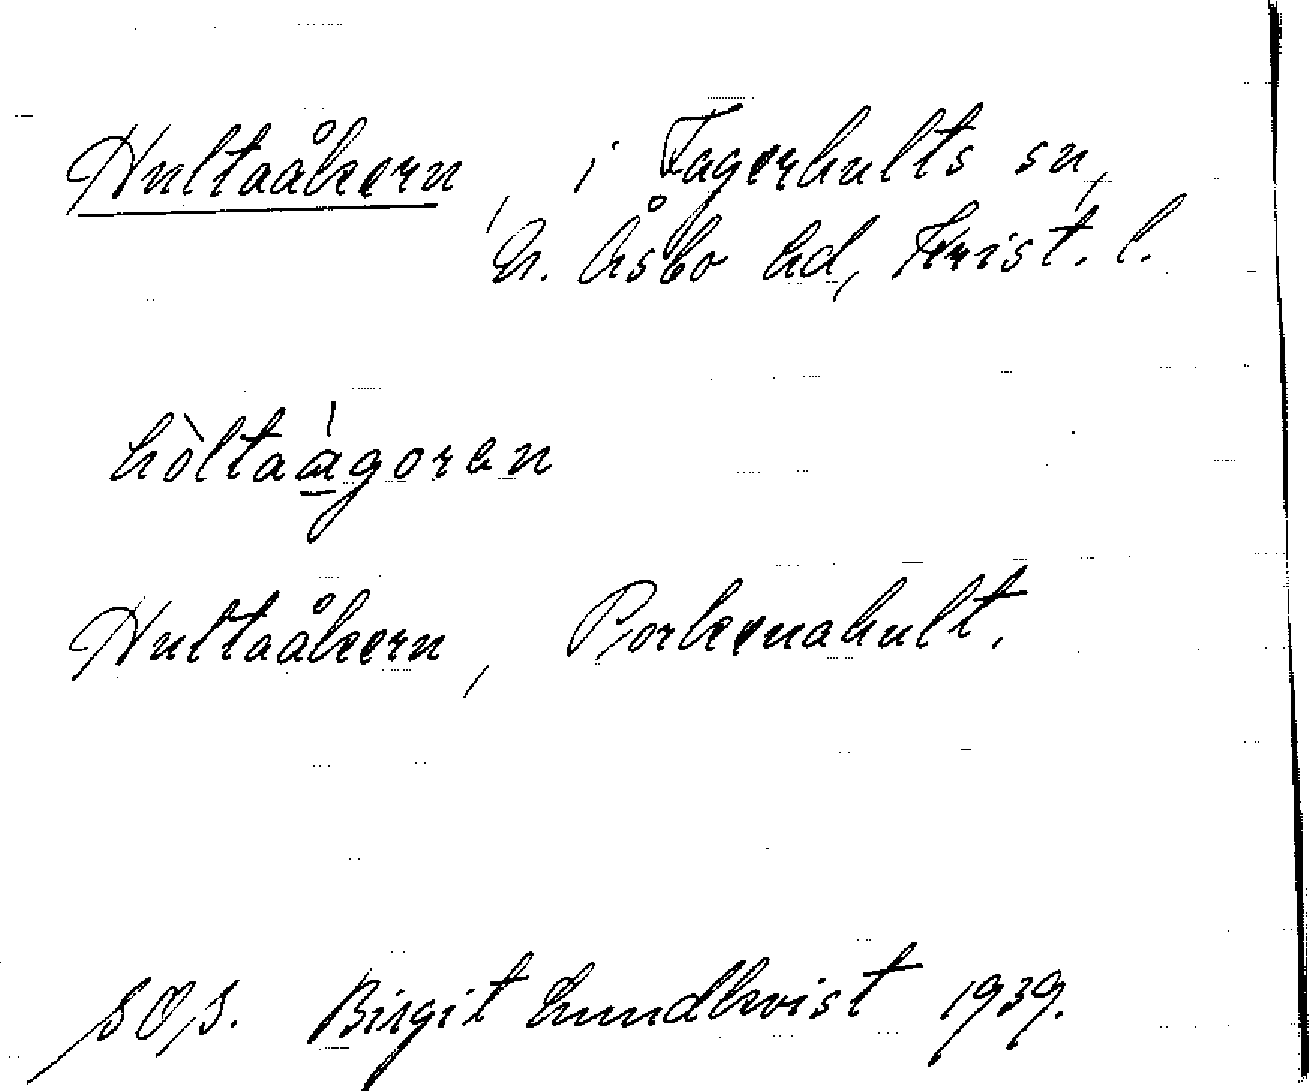 Hultaåkern, i Fagerhults sn,
N. Åsbo hd, Krist. l.
hòltaágoren
Hultaåkern, Porkenahult.
Birgit Lundkvist 1939.